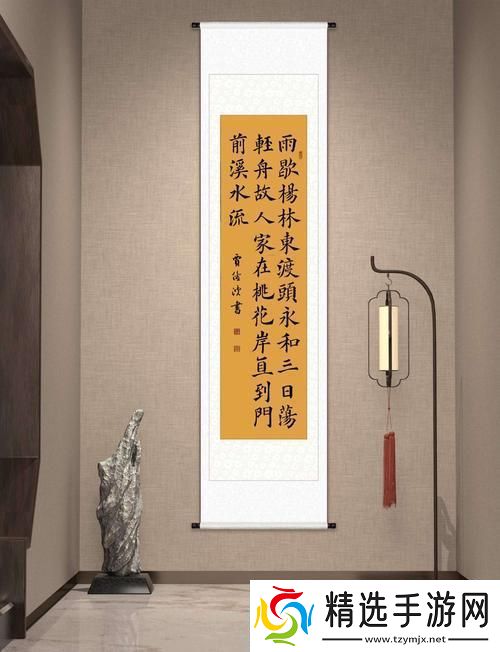 雨歇楊林東渡頭永和三日蕩
輕舟故人家在桃花岸直到門
前溪水流
精选手游网
www.tzymjx.net